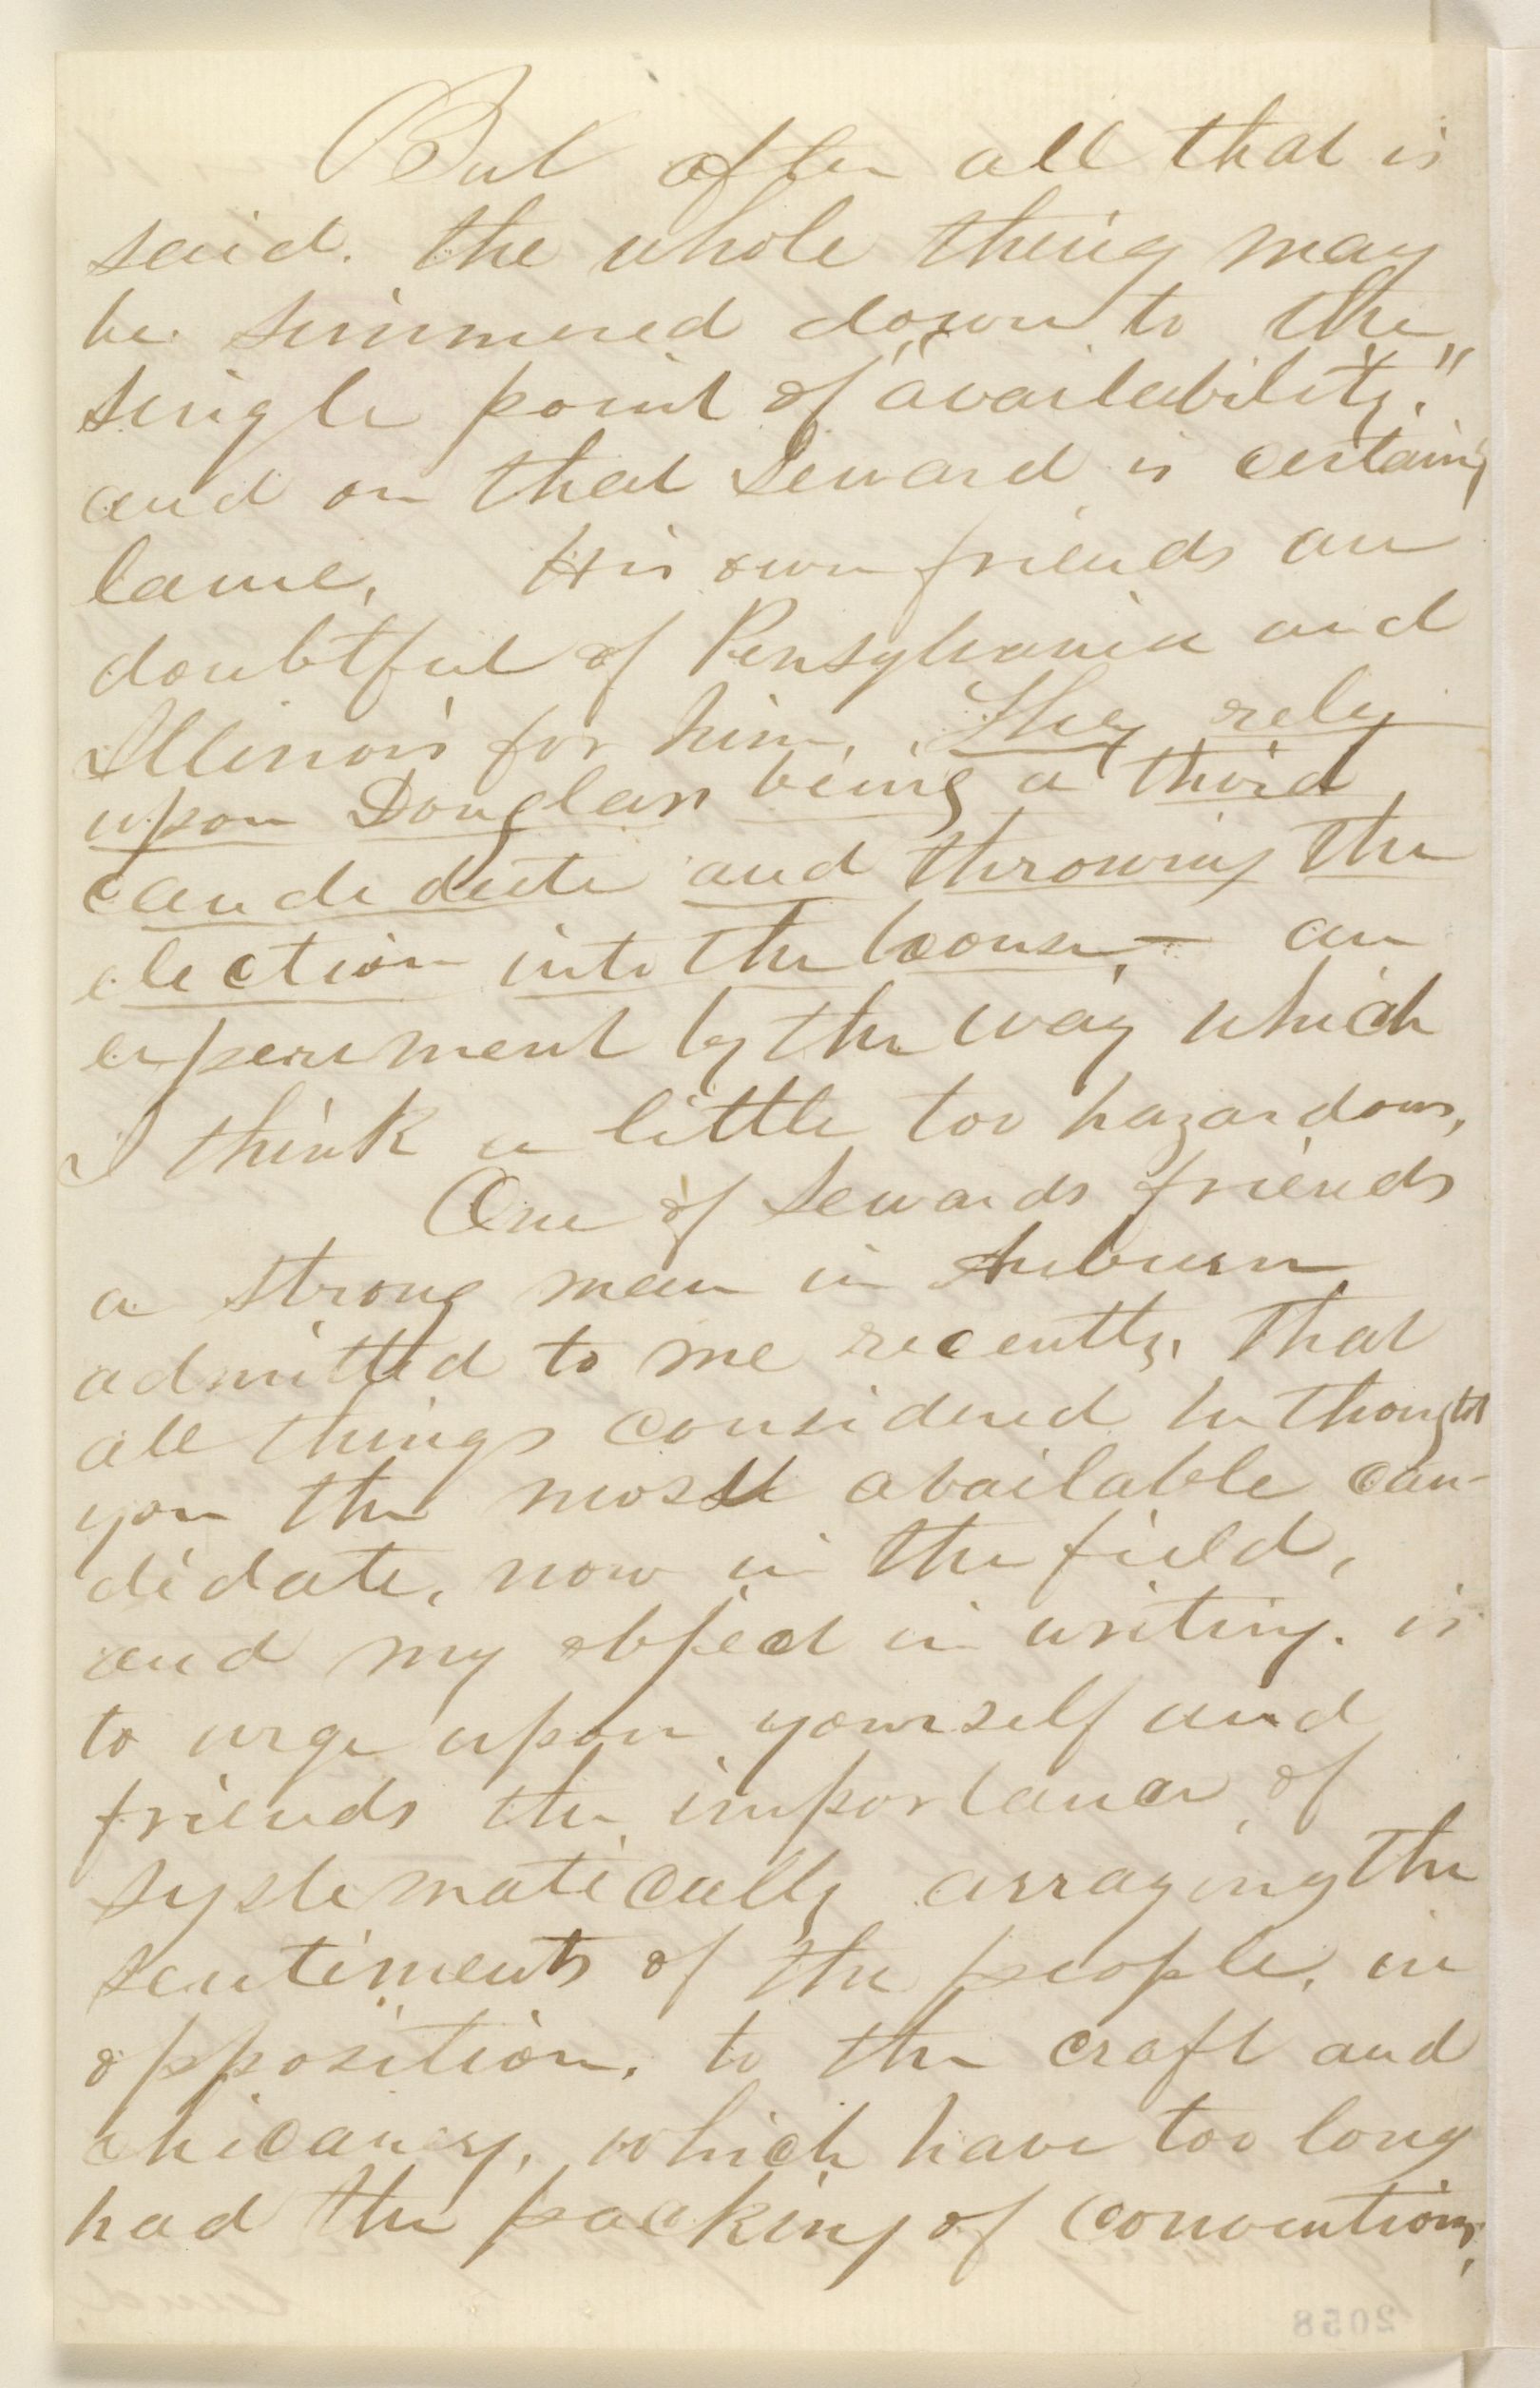 But after all that is
said. the whole thing may
be simmered down to the
single point of "availability,"
and on that Seward is certainly
lame. His own friends are
doubtful of Pensylvania and
Illinois for him. They rely
upon Douglass being a third
candidate and throwing the
election into the house,- an
experiment by the way which
I think a little too hazardous,
One of Sewards friends
a strong man in Auburn
admitted to me recently, that
all things considered he thought
you the most available can-
didate, now in the field,
and my object in writing. is
to urge upon yourself and
friends the importance, of
systematically arraying the
sentiments of the people, in
opposition, to the craft and
chicanery, which have too long
had the packing of conventions,
2058